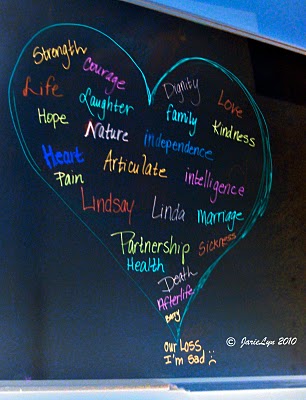 Strength
Courage
Dignity
Love
Life
Laughter
family
Kindness
Hope
Nature
independence
Heart
Articulate
intelligence
Pain
Lindsay
Linda
marriage
Partnership
Sickness
Health
Death
Afterlife
Barry
OUR LOSS
I'm sad :(
© JarieLyn 2010